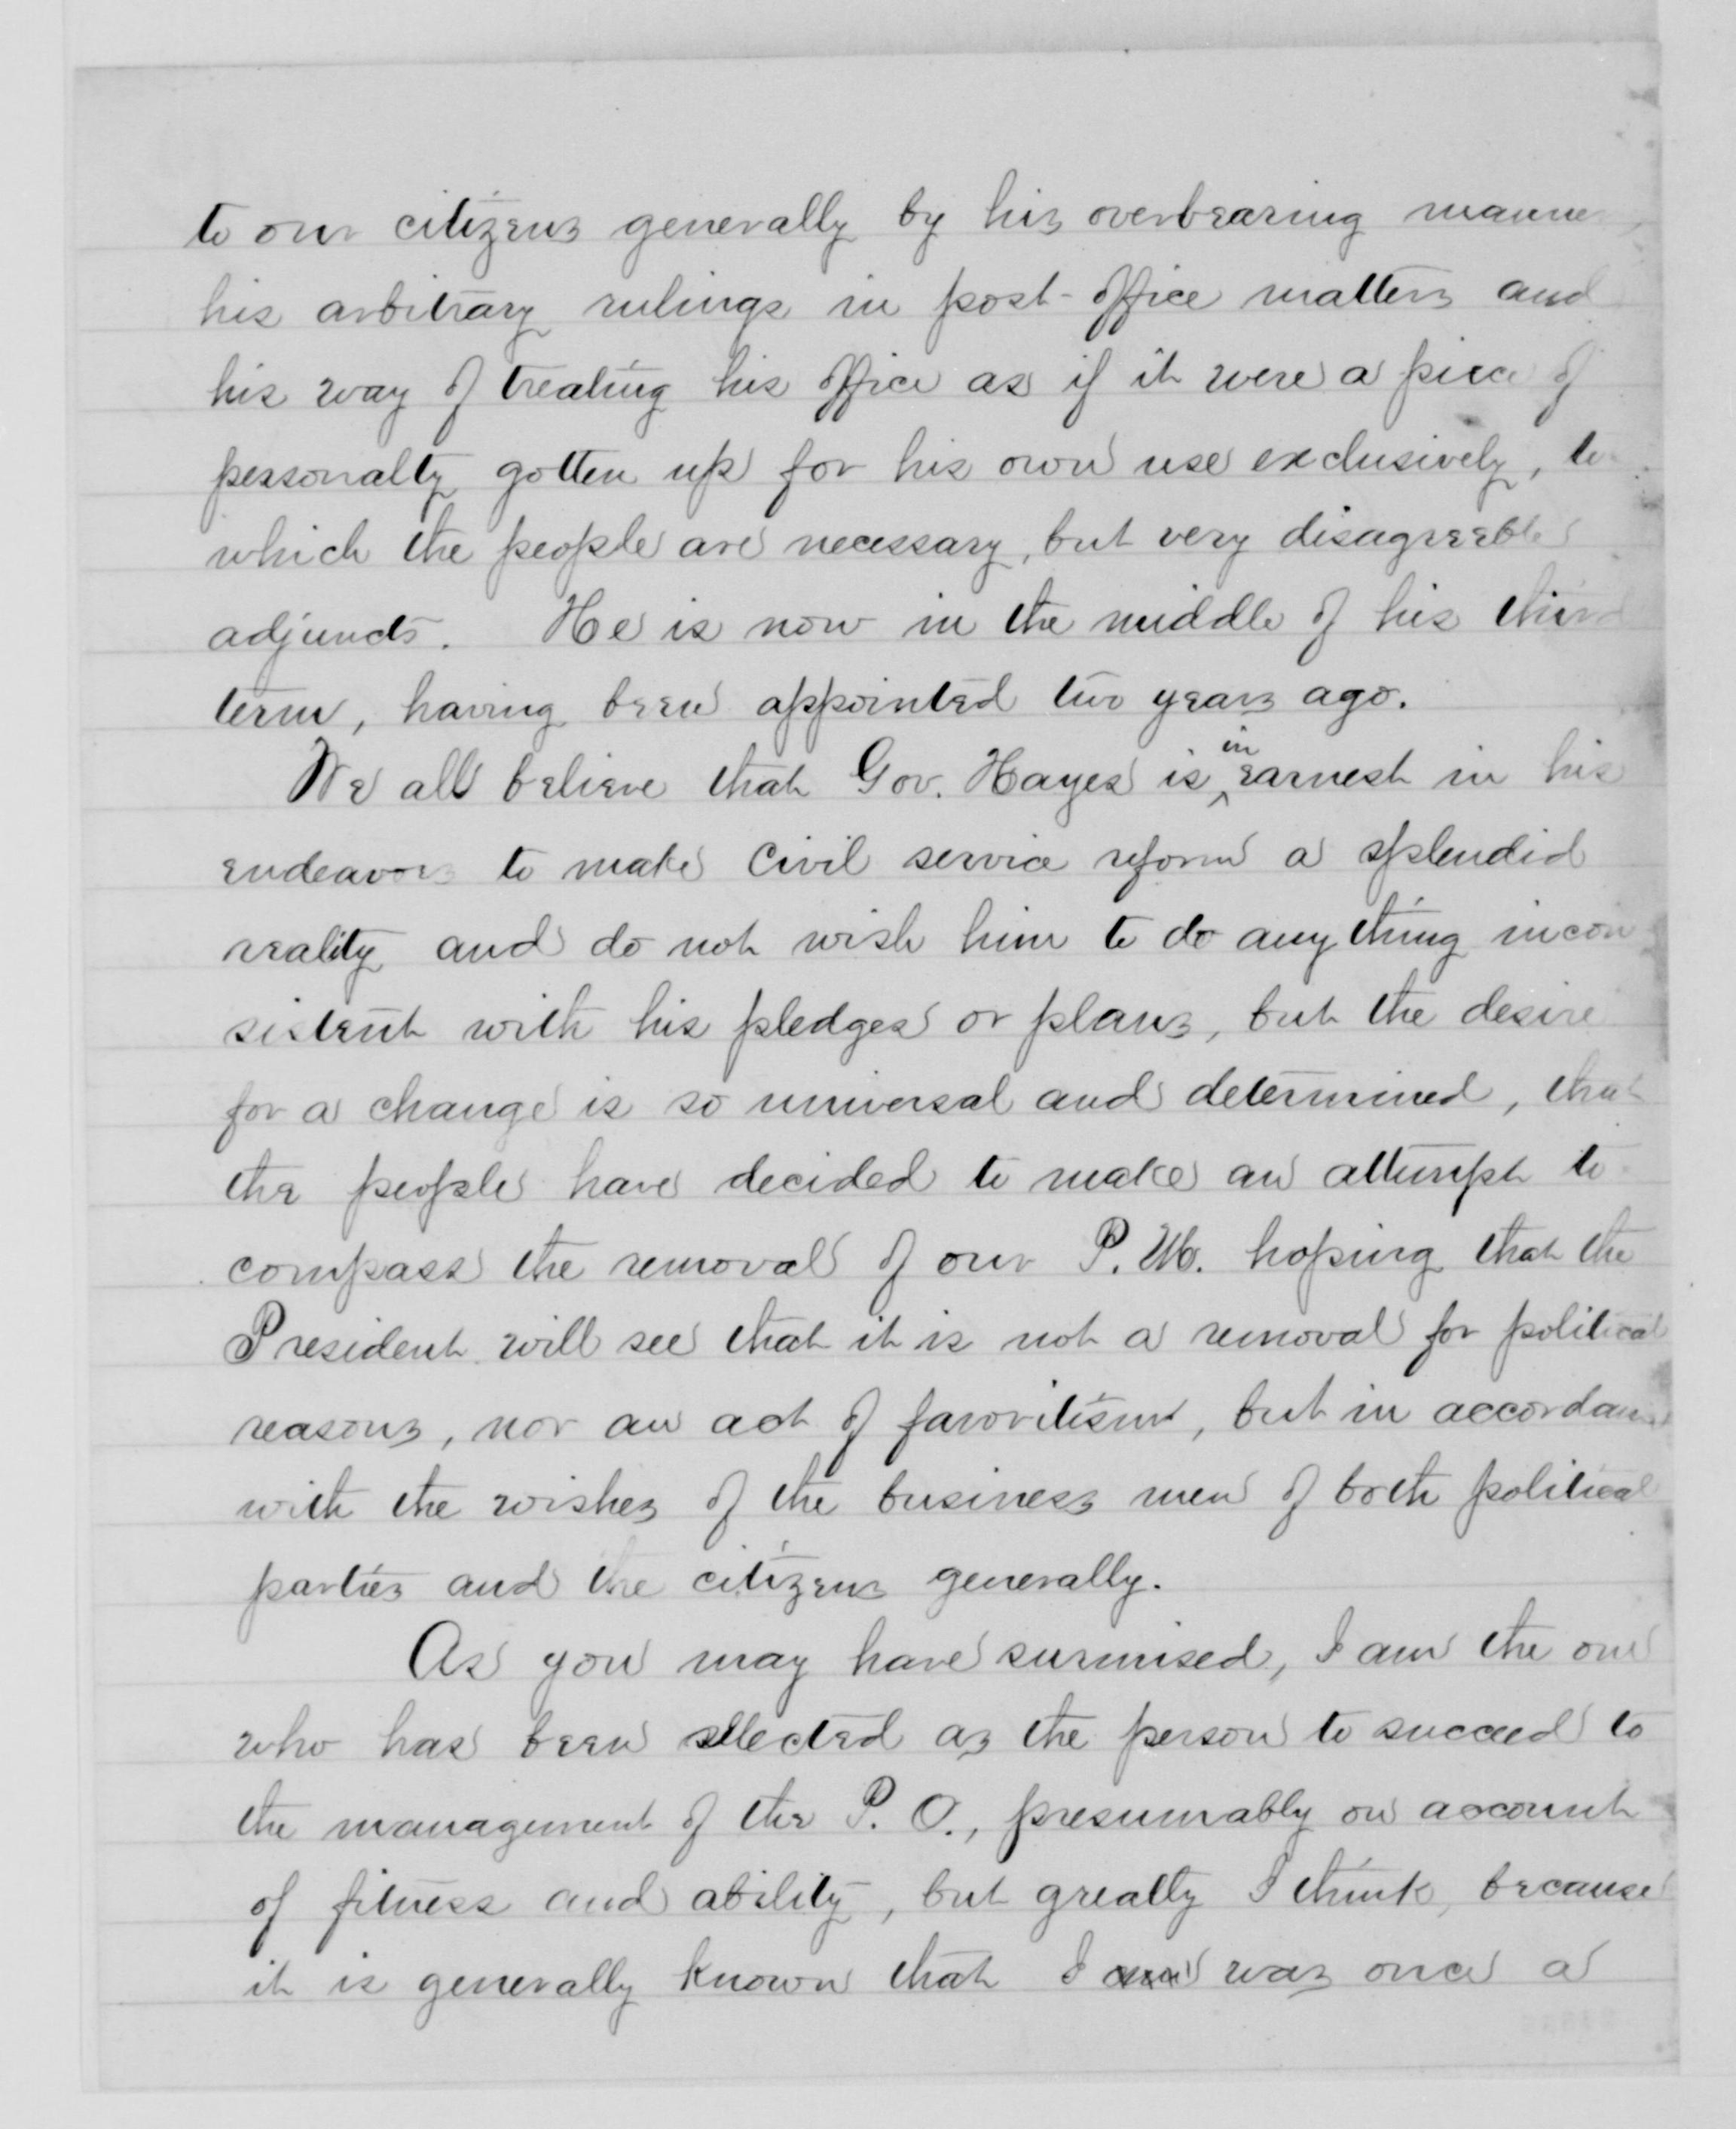 to our citizens generally by his overbearing manner,
his arbitrary rulings in post-office matters and
his way of treating his office as if it were a piece of
personalty gotten up for his own use exclusively, to
which the people are necessary, but very disagreeable
adjuncts. He is now in the middle of his third
term, having been appointed two years ago.
We all believe that Gov. Hayes is in earnest in his
endeavors to make civil service reform a splendid
reality and do not wish him to do any thing incon
sistent with his pledges or plans, but the desire
for a change is so universal and determined, that
the people have decided to make an attempt to
compass the removal of our P. M. hoping that the
President will see that it is not a removal for political
reasons, nor an act of favoritism, but in accordance
with the wishes of the business men of both political
parties and the citizens generally.
As you may have surmised, I am the one
who has been sellected as the person to succeed to
the management of the P. O., presumably on account
of fitness and ability, but greatly I think, because
it is generally known that I am was once a